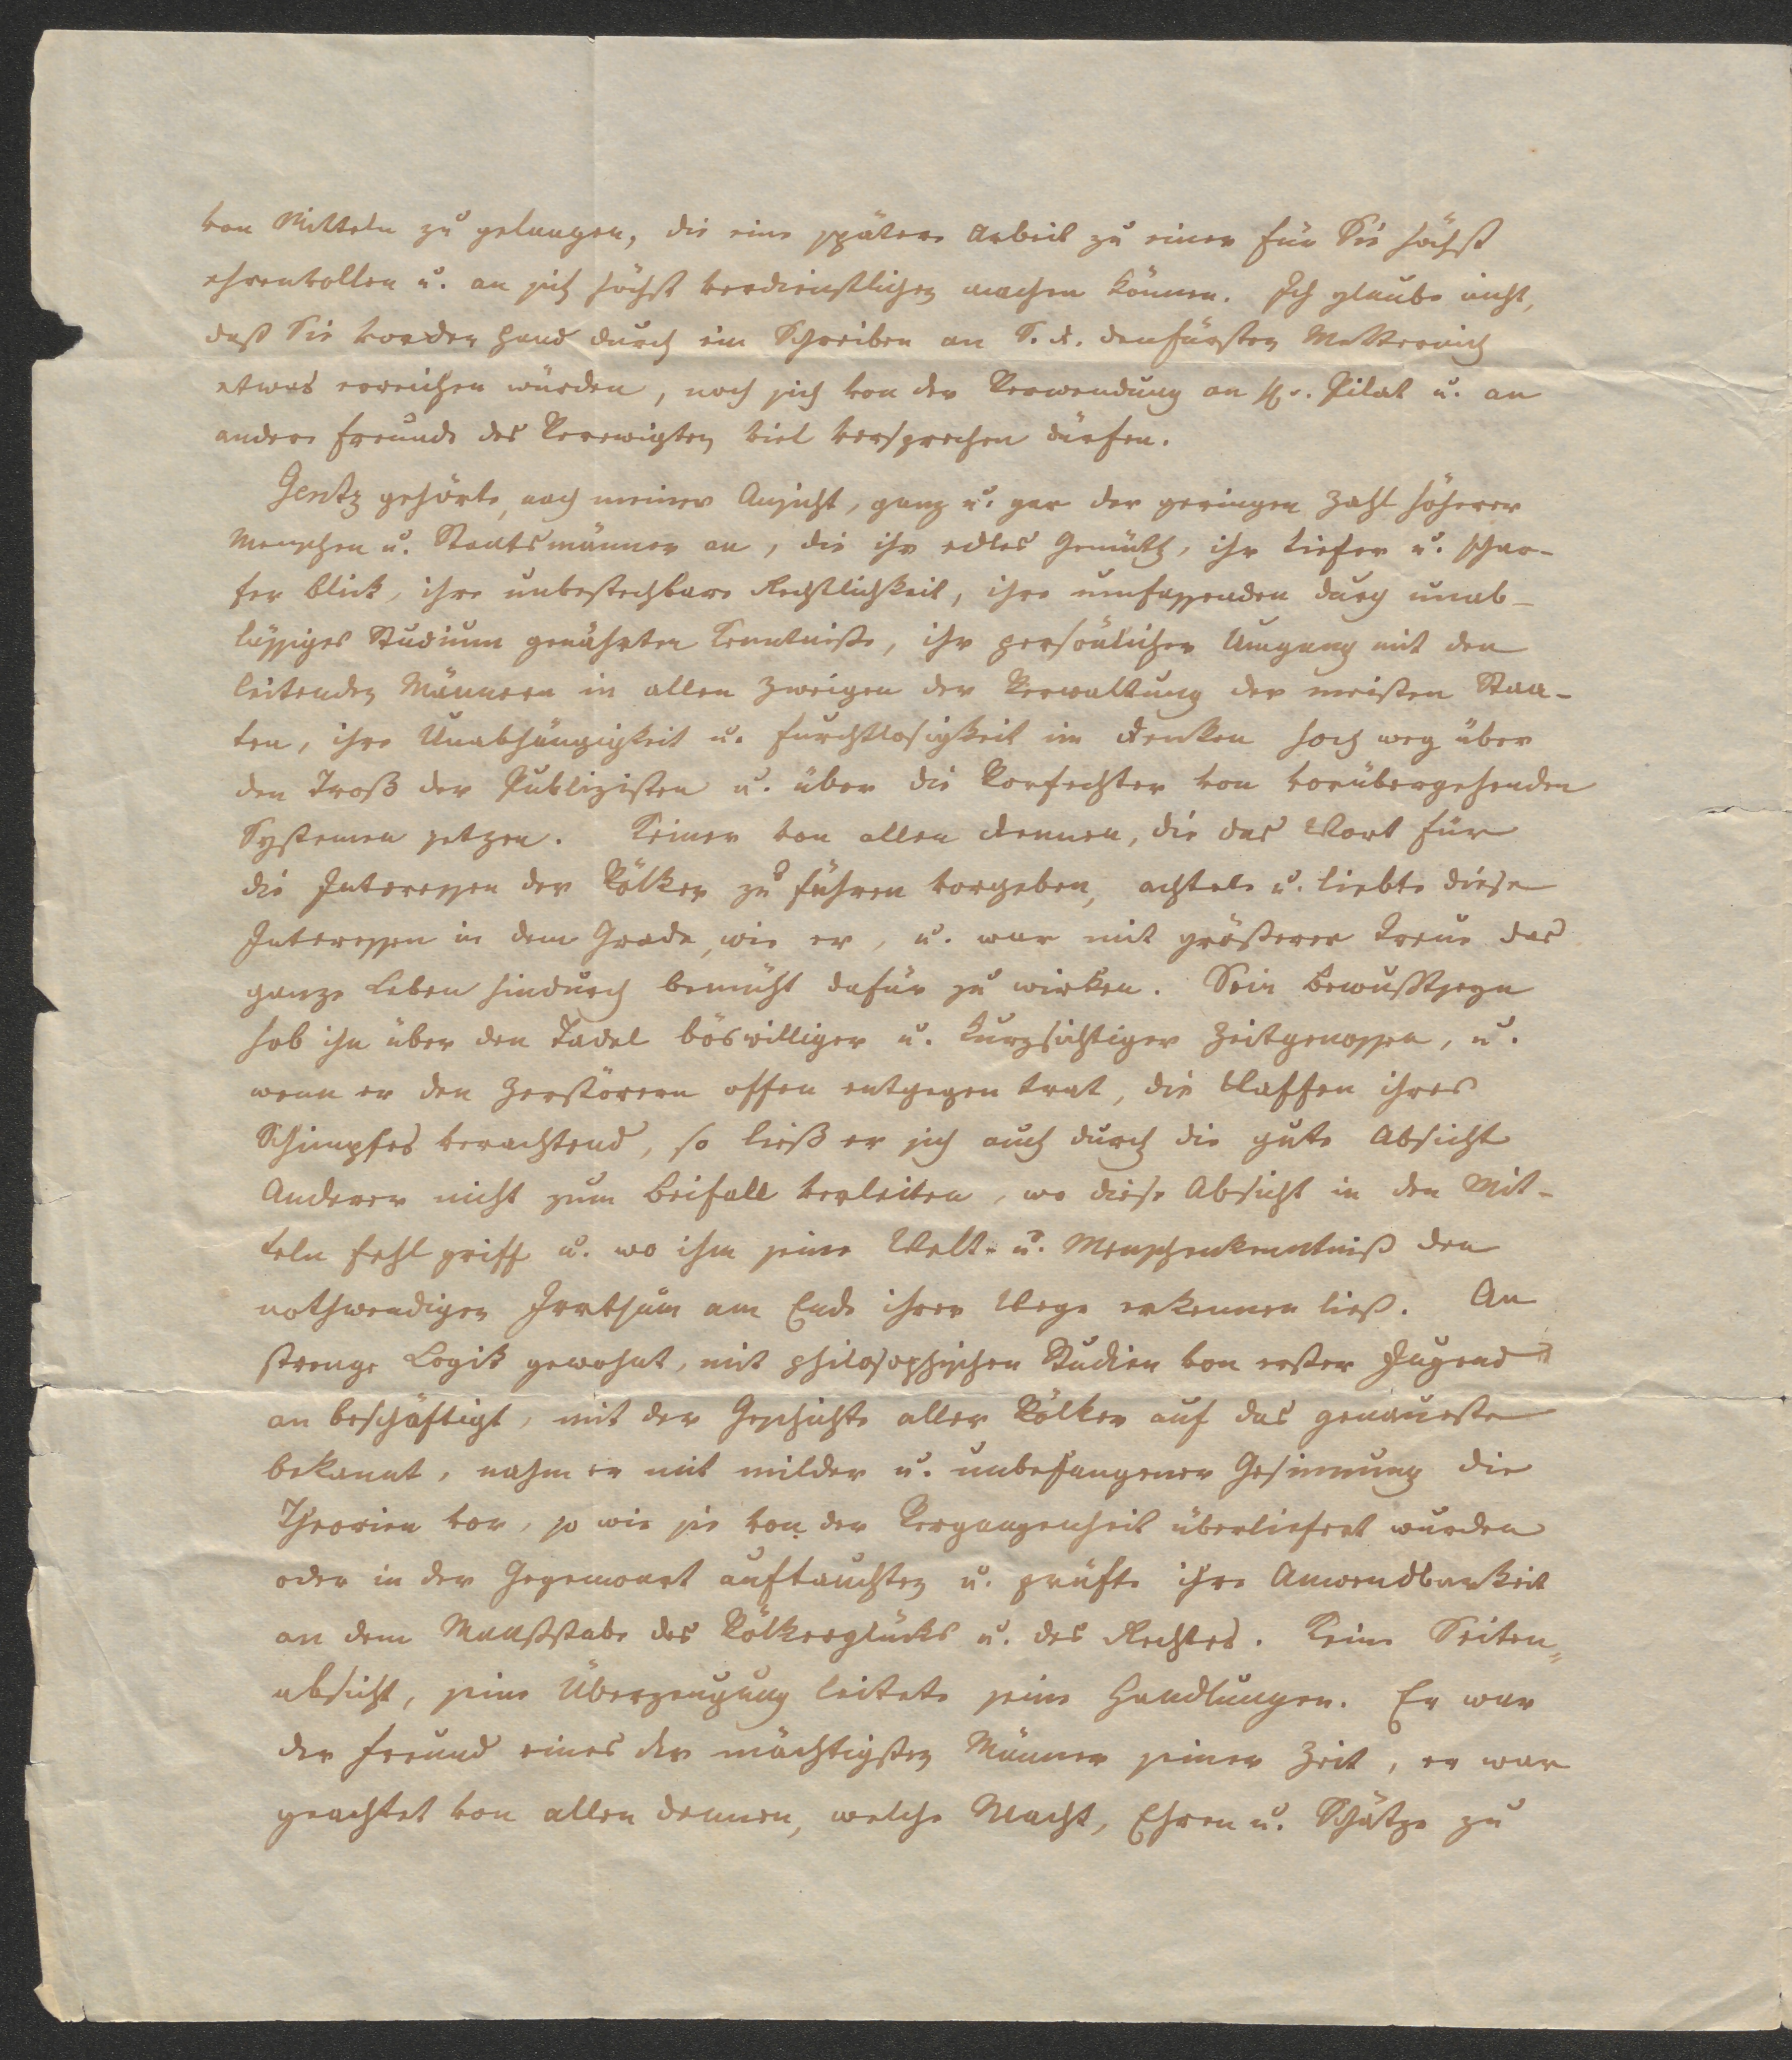 von Mitteln zu gelangen, die eine spätere Arbeit zu einer für Sie höchst
ehrenvollen u. an sich höchst verdienstlichen machen können. Ich glaube nicht,
daß Sie vor der Hand durch ein Schreiben an S. D. den Fürsten Metternich
etwas erreichen würden, noch sich von der Verwendung an H. v. Pilat u. an
andere Freunde des Verewigten viel versprechen dürfen.
Gentz gehörte, nach meiner Ansicht, ganz u. gar der geringen Zahl höherer
Menschen u. Staatsmänner an, die ihr edles Gemüth, ihr tiefer u. schar-
fer Blick, ihre unbestechbare Rechtlichkeit, ihre umfassenden durch unab-
lässiges Studium genährten Kenntniße, ihr persönlicher Umgang mit den
leitenden Männern in allen Zweigen der Verwaltung der meisten Staa-
ten, ihre Unabhängigkeit u. Furchtlosigkeit im Denken hoch weg über
den Troß der Publizisten u. über die Vorfechter von vorübergehenden
Systemen setzen. Keiner von allen Dennen, die das Wort für
die Interessen der Völker zu führen vorgeben, achtete u. liebte diese
Interessen in dem Grade, wie er, u. war mit größerer Treue das
ganze Leben hindurch bemüht dafür zu wirken. Sein Bewußtseyn
hob ihn über den Tadel böswilliger u. kurzsichtiger Zeitgenossen, u.
wenn er den Zerstörern offen entgegen trat, die Waffen ihres
Schimpfes verachtend, so ließ er sich auch durch die gute Absicht
Anderer nicht zum Beifall verleiten, wo diese Absicht in den Mit-
teln fehl griff u. wo ihm seine Welt- u. Menschenkenntniß den
nothwendigen Irrthum am Ende ihrer Wege erkennen ließ. An
strenge Logik gewohnt, mit philosophischen Studien von erster Jugend
an beschäftigt, mit der Geschichte aller Völker auf das genaueste
bekannt, nahm er mit milder u. unbefangener Gesinnung die
Theorien vor, so wie sie von der Vergangenheit überliefert wurden
oder in der Gegenwart auftauchten u. prüfte ihre Anwendbarkeit
an dem Maaßstabe des Völkerglücks u. des Rechtes. Keine Seiten-
absicht, seine Überzeugung leitete seine Handlungen. Er war
der Freund eines der mächtigsten Männer seiner Zeit, er war
geachtet von allen dennen, welche Macht, Ehren u. Schätze zu